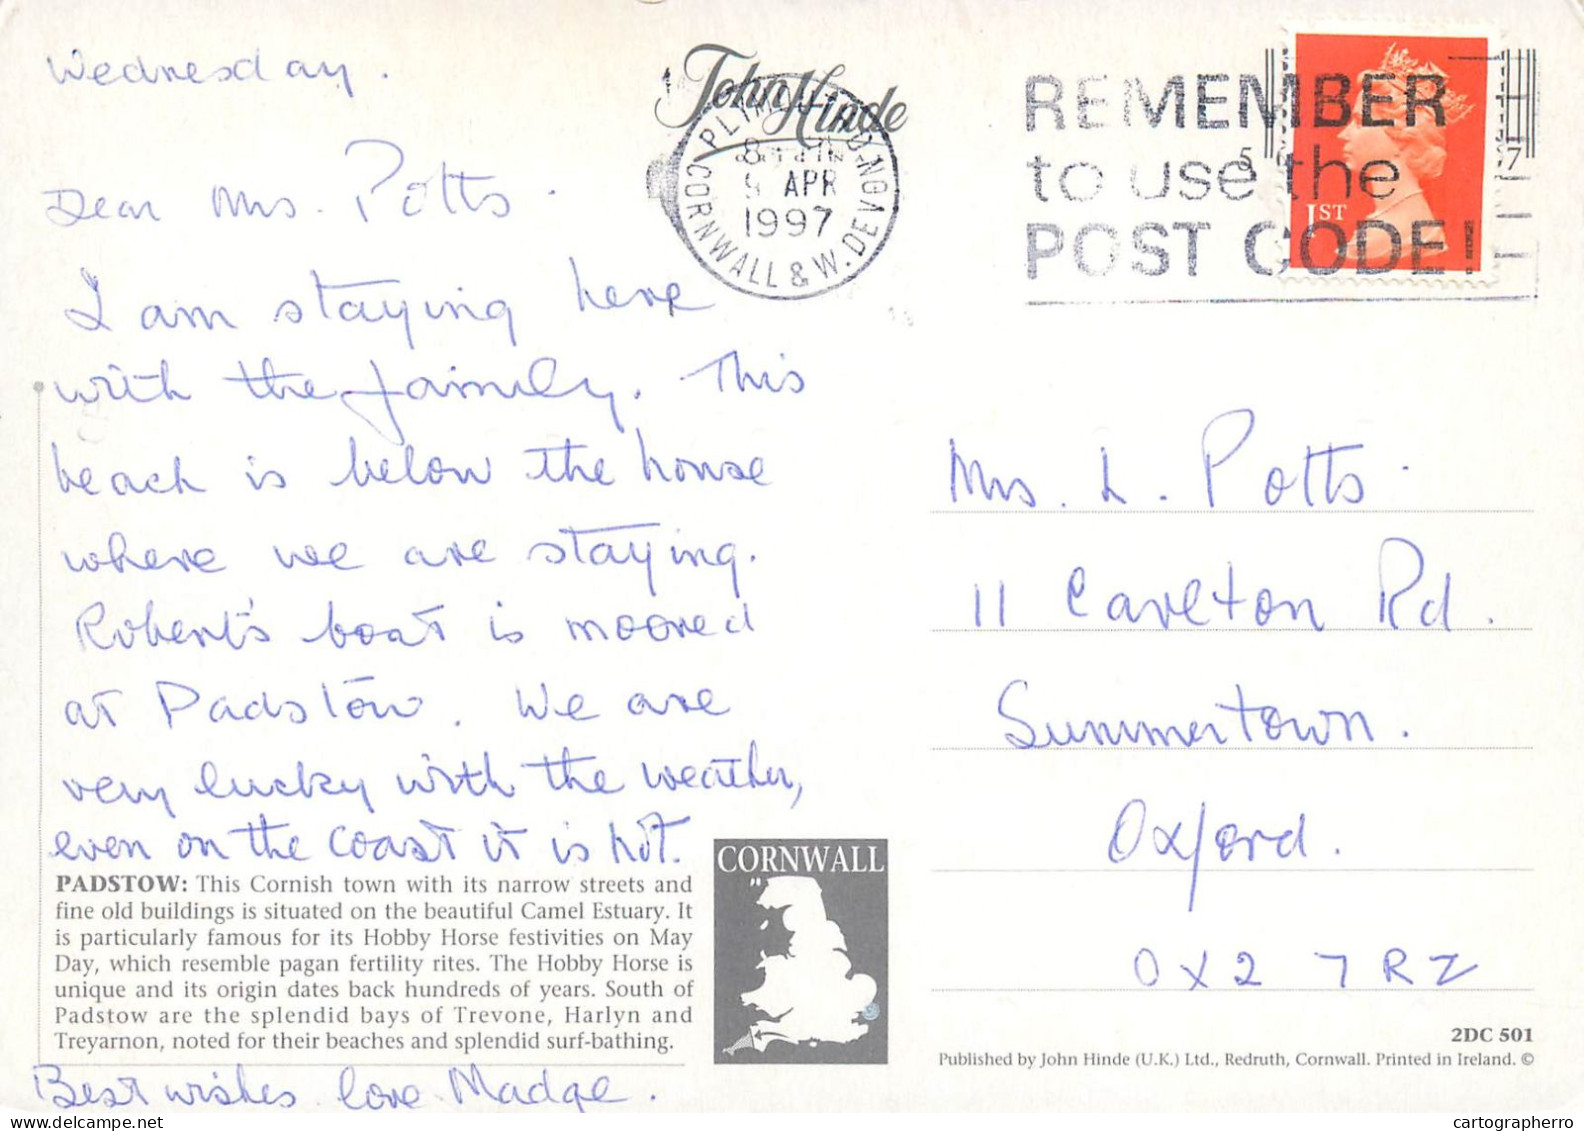 Wednesday.
Dear Mrs. Potts.
I am staying here
with the family. This
beach is below the house
where we are staying.
Robert's boat is moored
at Padstow. We are
very lucky with the weather,
even on the coast it is hot.
PADSTOW: This Cornish town with its narrow streets and
fine old buildings is situated on the beautiful Camel Estuary. It
is particularly famous for its Hobby Horse festivities on May
Day, which resemble pagan fertility rites. The Hobby Horse is
unique and its origin dates back hundreds of years. South of
Padstow are the splendid bays of Trevone, Harlyn and
Treyarnon, noted for their beaches and splendid surf-bathing.
Best wishes love Madge.
CORNWALL
John Hinde
APR
1997
CORNWALL & W. DEVON
REMEMBER
to use the
POST CODE!
1ST
Mrs. L. Potts.
11 Carlton Rd.
Summertown.
Oxford.
OX2 7RZ
2DC 501
Published by John Hinde (U.K.) Ltd., Redruth, Cornwall. Printed in Ireland. ©
cartographerro